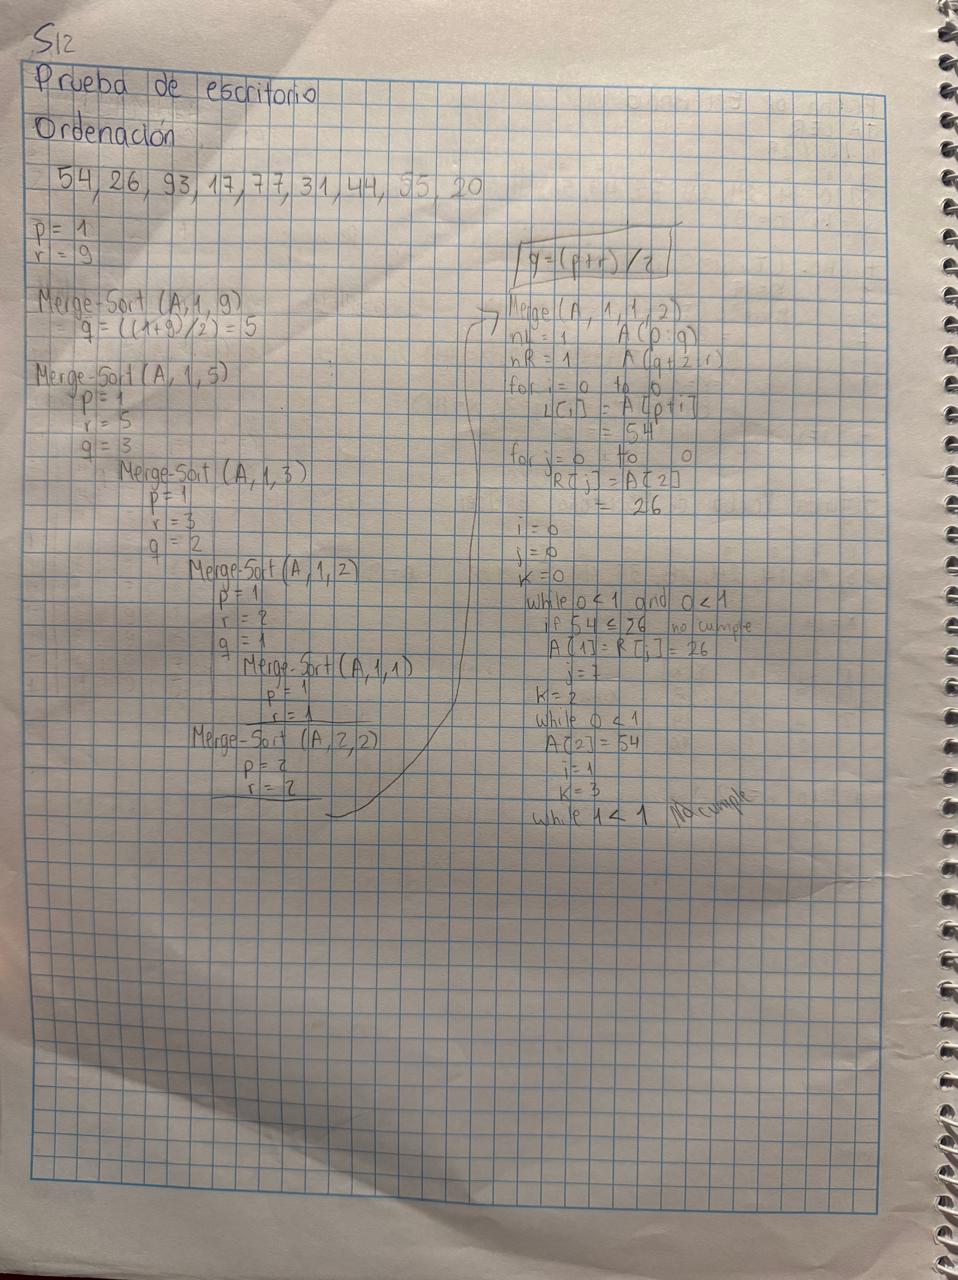 S12
Prueba de escritorio
Ordenación
54, 26, 93, 17, 77, 31, 44, 55, 20
p = 1
r = 9
Merge-Sort (A,1,9)
q = ((1+9)/2) = 5
Merge-Sort (A,1,5)
p = 1
r = 5
q = 3
Merge-Sort (A,1,3)
p = 1
r = 3
q = 2
Merge-Sort (A,1,2)
p = 1
r = 2
q = 1
Merge-Sort (A,1,1)
p = 1
r = 1
Merge-Sort (A,2,2)
p = 2
r = 2
q = (p+r)/2
Merge (A, 1, 1, 2)
nL = 1 A(p:q)
nR = 1 A(q+2:r)
for i = 0 to 0
L[i] = A[p+i]
= 54
for j = 0 to 0
R[j] = A[2]
= 26
i = 0
j = 0
K = 0
while 0 < 1 and 0 < 1
if 54 ≤ 26 no cumple
A[1] = R[j] = 26
j = 1
K = 2
while 0 < 1
A[2] = 54
i = 1
K = 3
while 1 < 1 No cumple